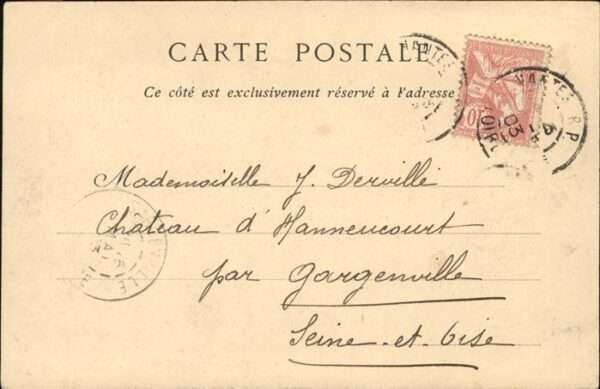 CARTE POSTALE
Ce côté est exclusivement réservé à l'adresse
NANTES R.P.
03
Mademoiselle J. Derville
Chateau d'Hanneucourt
par Gargenville
Seine-et-Oise